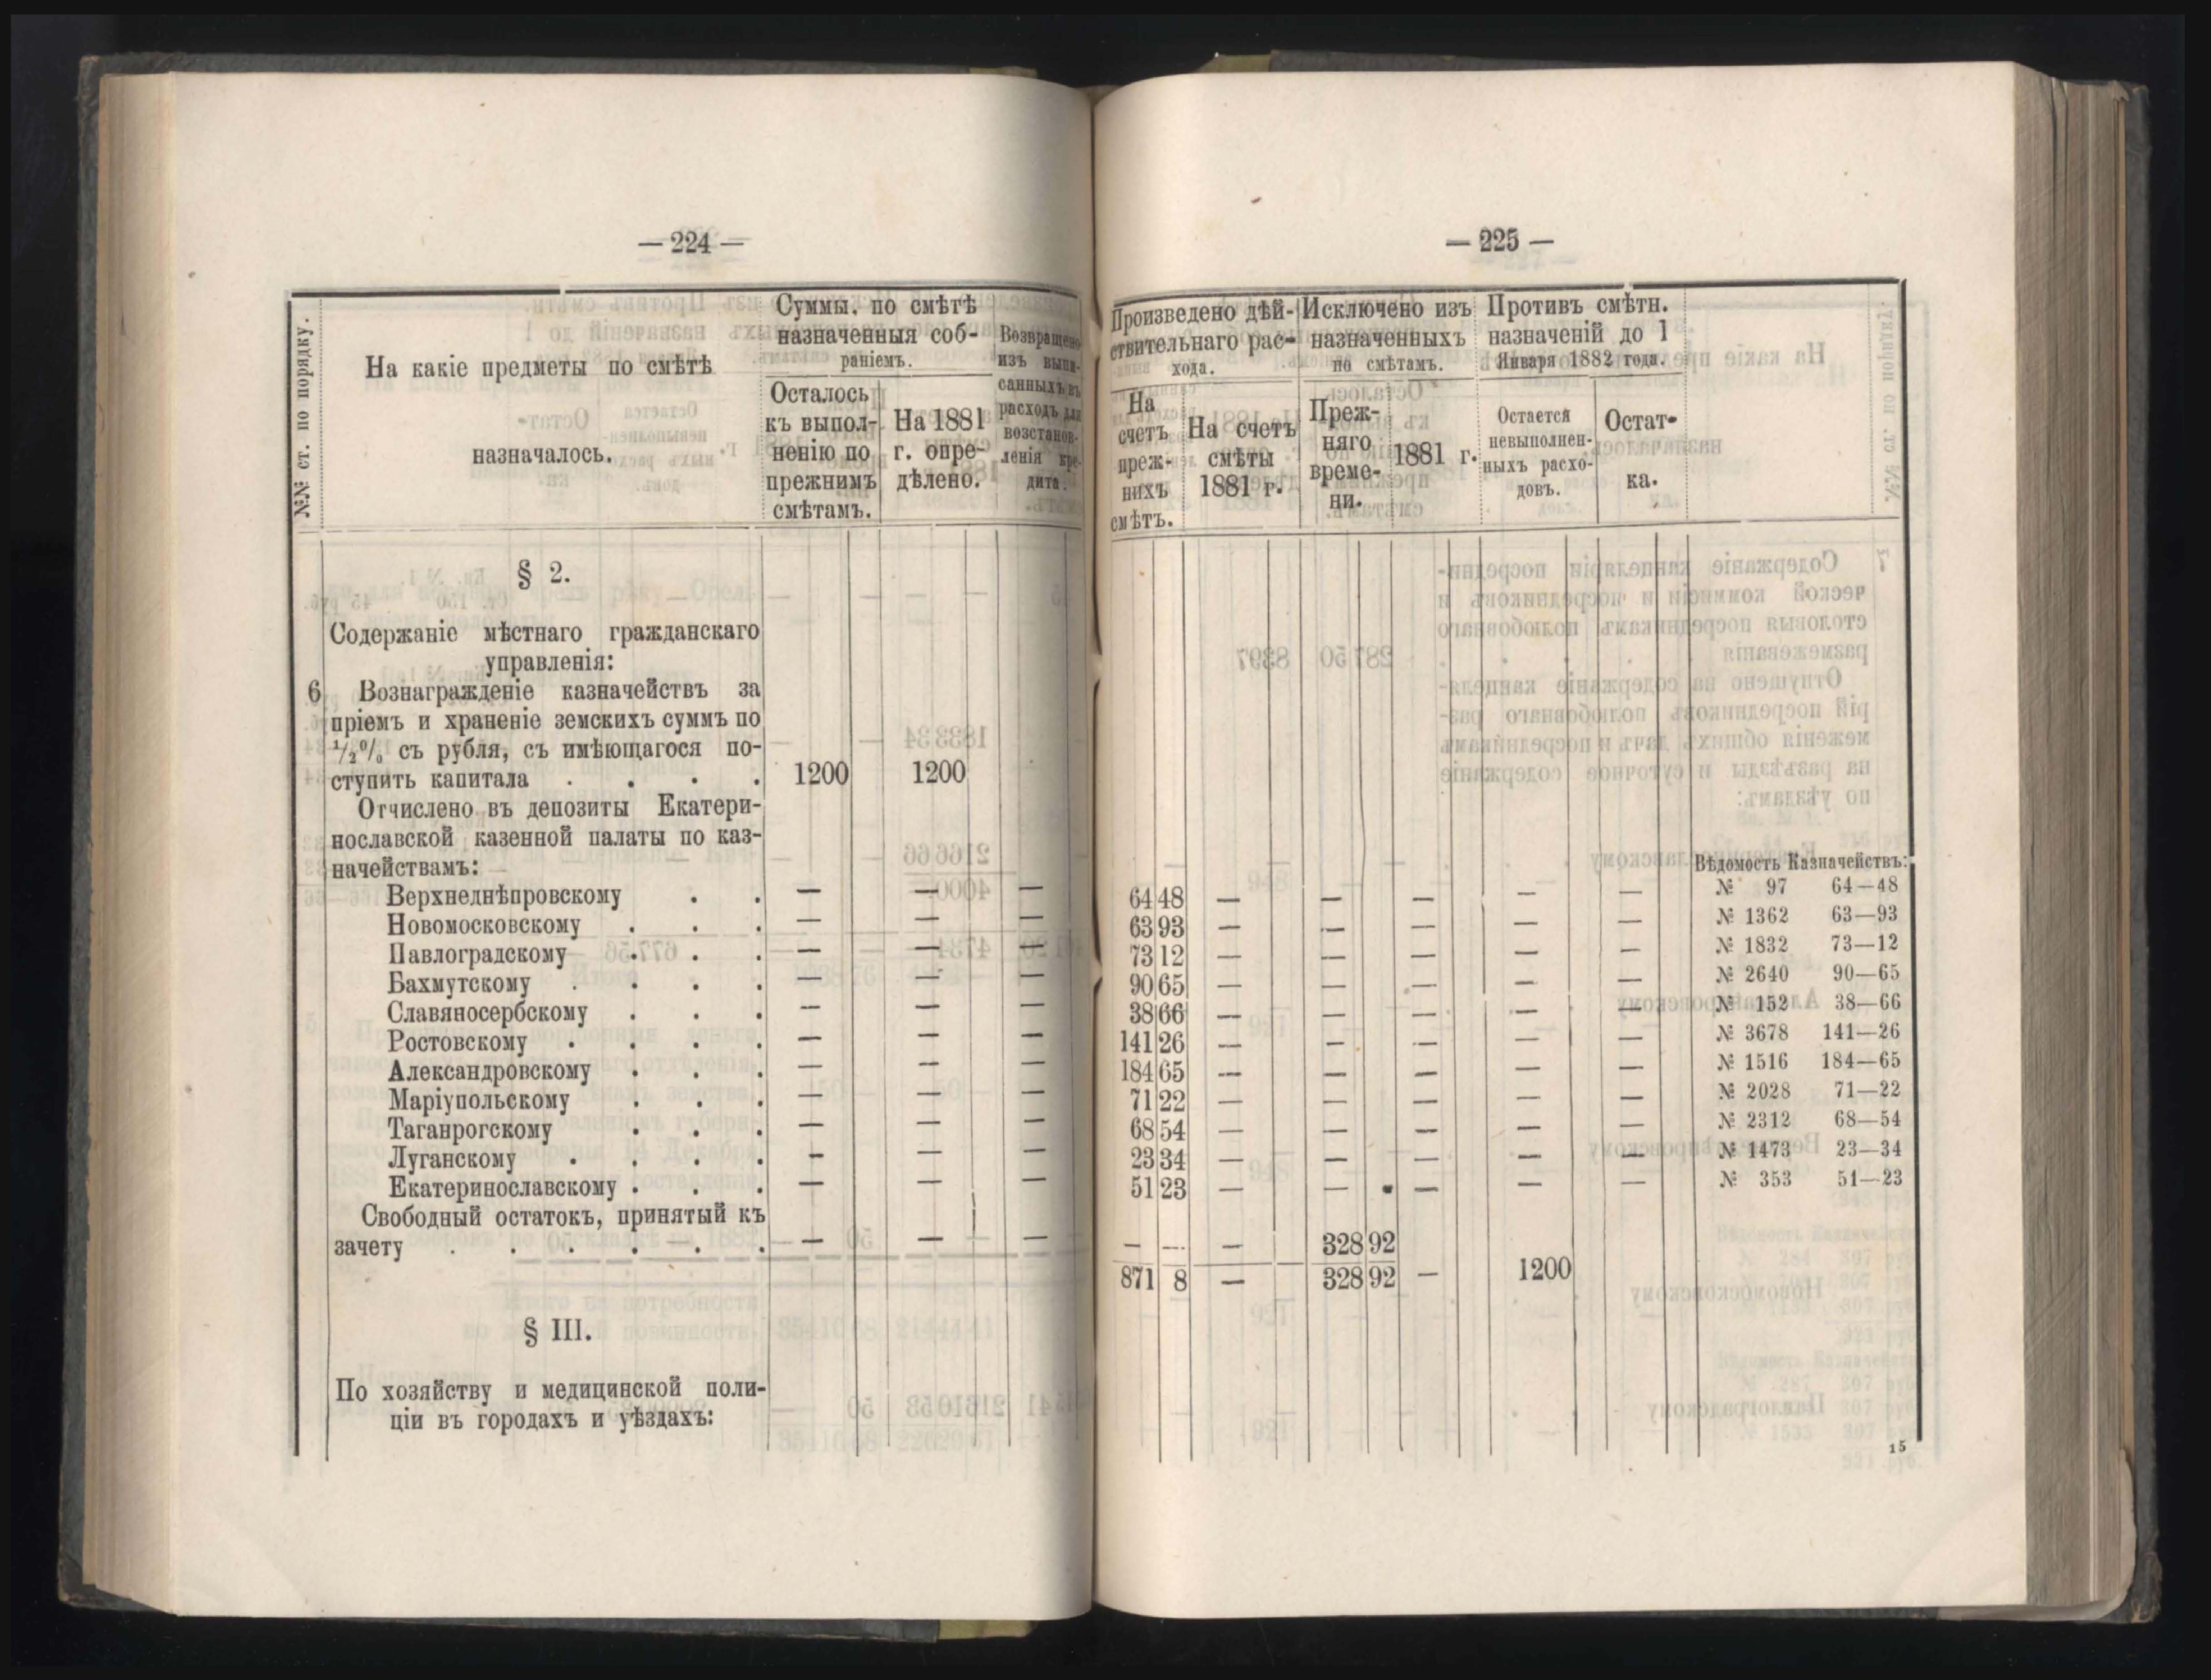 — 224 —
№№ ст. по порядку.
На какіе предметы по смѣтѣ
назначалось.
Суммы. по смѣтѣ
назначенныя соб-
раніемъ.
Осталось
къ выпол-
ненію по
прежнимъ
смѣтамъ.
На 1881
г. опре-
дѣлено.
Возвращено
изъ выпи-
санныхъ въ
расходъ для
возстанов-
ленія кре-
дита.
§ 2.
Содержаніе мѣстнаго гражданскаго
управленія:
6 Вознагражденіе казначействъ за
пріемъ и храненіе земскихъ суммъ по
½% съ рубля, съ имѣющагося по-
ступить капитала . . . . 1200 1200
Отчислено въ депозиты Екатери-
нославской казенной палаты по каз-
начействамъ:
Верхнеднѣпровскому . . — — —
Новомосковскому . . . — — —
Павлоградскому . . . — — —
Бахмутскому . . . . — — —
Славяносербскому . . . — — —
Ростовскому . . . . — — —
Александровскому . . . — — —
Маріупольскому . . . — — —
Таганрогскому . . . — — —
Луганскому . . . . — — —
Екатеринославскому . . . — — —
Свободный остатокъ, принятый къ
зачету . . . . . . — — —
§ III.
По хозяйству и медицинской поли-
ціи въ городахъ и уѣздахъ:
— 225 —
Произведено дѣй-
ствительнаго рас-
хода.
На
счетъ
преж-
нихъ
смѣтъ.
На счетъ
смѣты
1881 г.
Исключено изъ
назначенныхъ
по смѣтамъ.
Преж-
няго
време-
ни.
1881 г.
Противъ смѣтн.
назначеній до 1
Января 1882 года.
Остается
невыполнен-
ныхъ расхо-
довъ.
Остат-
ка.
Вѣдомость Казначействъ:
64 48 — — — — — № 97 64—48
63 93 — — — — — № 1362 63—93
73 12 — — — — — № 1832 73—12
90 65 — — — — — № 2640 90—65
38 66 — — — — — № 152 38—66
141 26 — — — — — № 3678 141—26
184 65 — — — — — № 1516 184—65
71 22 — — — — — № 2028 71—22
68 54 — — — — — № 2312 68—54
23 34 — — — — — № 1473 23—34
51 23 — — — — — № 353 51—23
— — — 328 92
871 8 — 328 92 — 1200
15